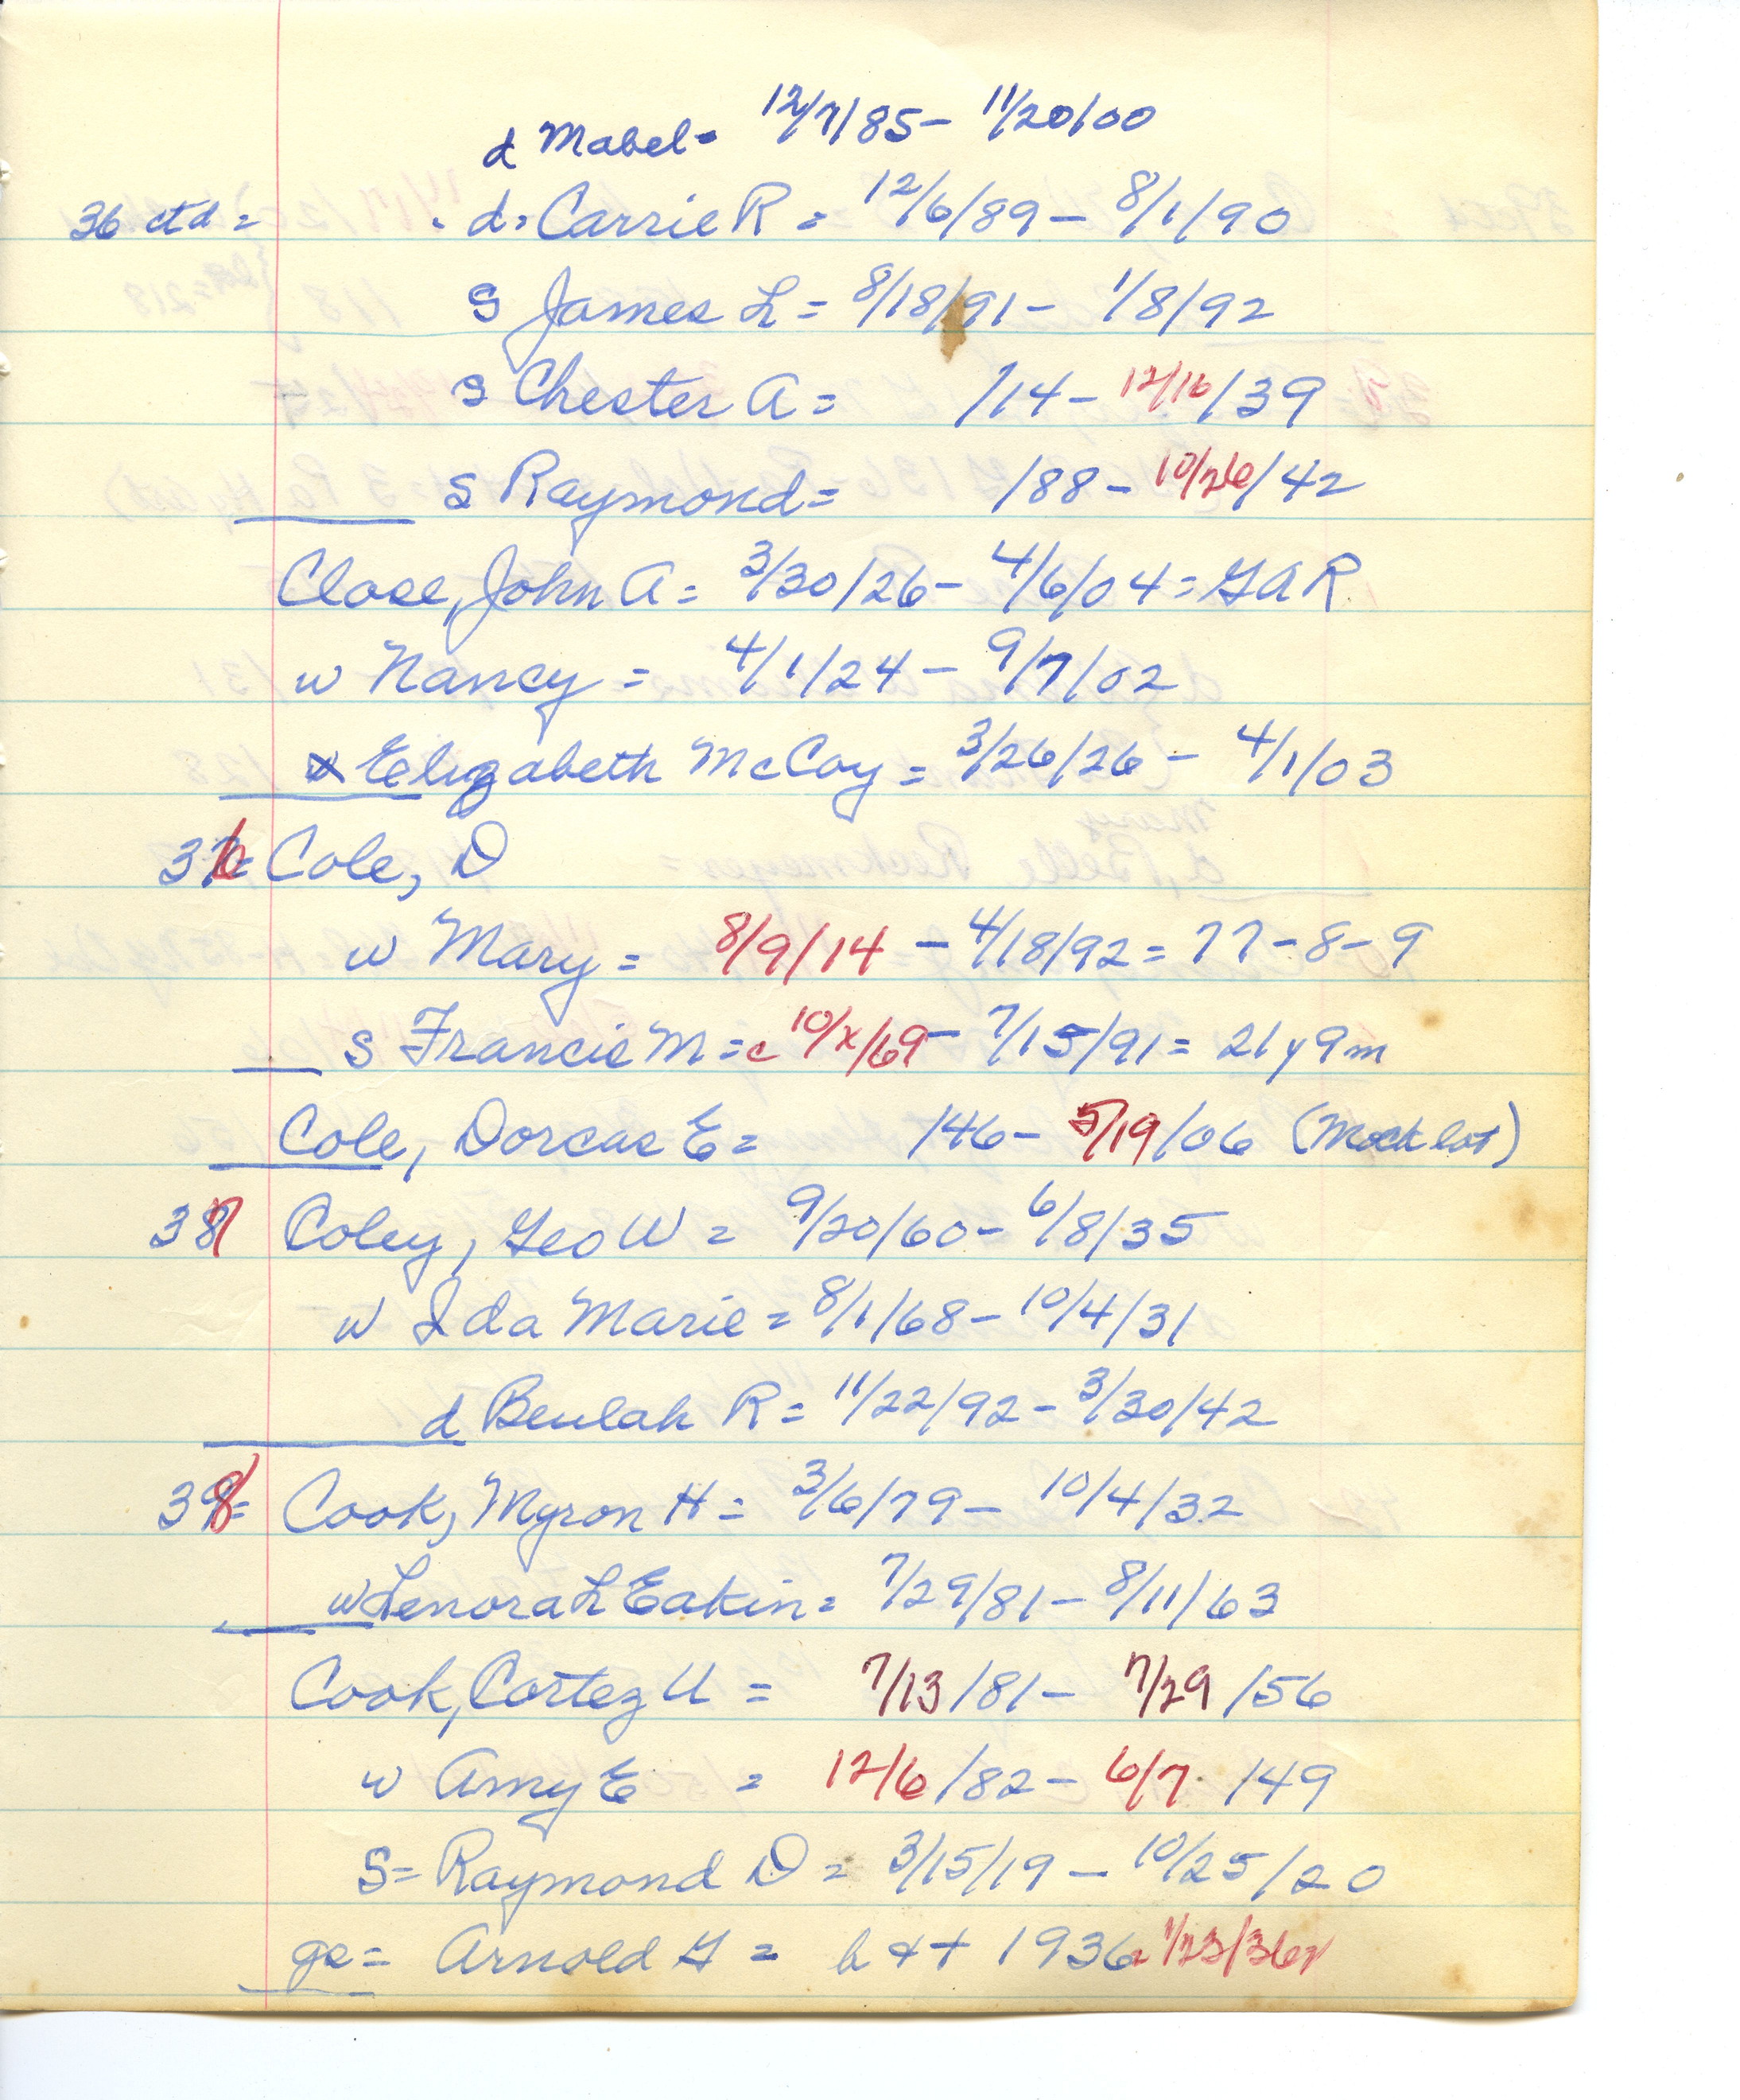 d Mabel = 12/7/85 - 11/20/00
36 ctd = d, Carrie R = 12/6/89 - 8/1/90
s James L = 8/18/91 - 1/8/92
s Chester A = /14 - 12/16/39
s Raymond = /88 - 10/26/42
Close, John A = 3/30/26 - 4/6/04 = GAR
w Nancy = 4/1/24 - 9/7/02
Elizabeth McCoy = 3/26/26 - 4/1/03
36 = Cole, D
w Mary = 8/9/14 - 4/18/92 = 77-8-9
s Francis M = c 10/x/69 - 7/15/91 = 21y9m
Cole, Dorcas E = /46 - 5/19/06 (Mock lot)
37 Coley, Geo W = 9/20/60 - 6/8/35
w Ida Marie = 8/1/68 - 10/4/31
d Beulah R = 11/22/92 - 3/30/42
38 = Cook, Myron H = 3/6/79 - 10/4/32
w Lenora L Eakin = 7/29/81 - 8/11/63
Cook, Cortez U = 7/13/81 - 7/29/56
w Amy E = 12/6/82 - 6/7/49
S = Raymond D = 3/15/19 - 10/25/20
gs = Arnold G = b & + 1936